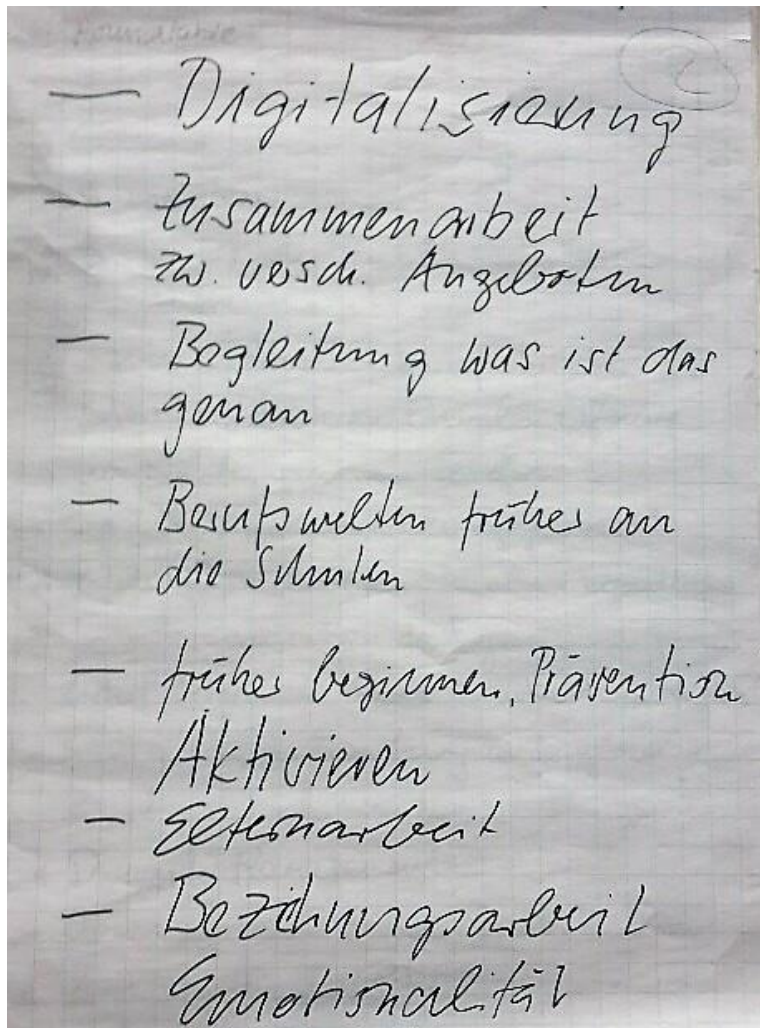 — Digitalisierung
— Zusammenarbeit
zw. versch. Angeboten
— Begleitung was ist das
genau
— Berufswelten früher an
die Schulen
— früher beginnen, Prävention
Aktivieren
— Elternarbeit
— Beziehungsarbeit
Emotionalität